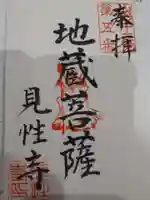 奉拝
地蔵菩薩
見性寺